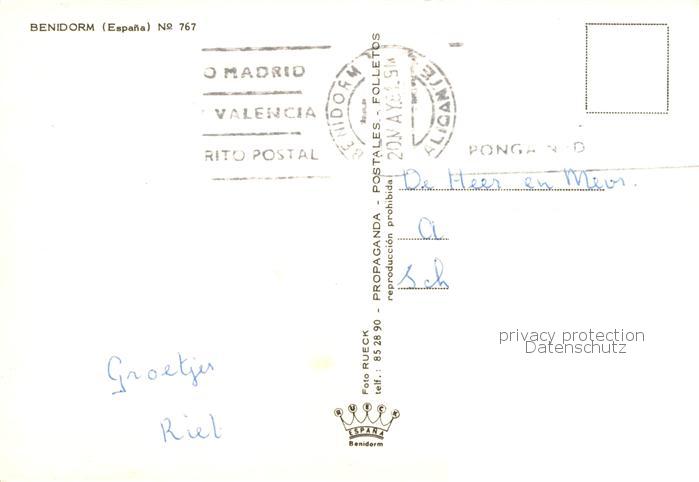 BENIDORM (España) Nº 767
O MADRID
VALENCIA
RITO POSTAL
BENIDORM
20 MAY
ALICANTE
PONGA N D
De Heer en Mevr.
a
Sch
privacy protection
Datenschutz
Groetjes
Riet
Foto RUECK - PROPAGANDA - POSTALES - FOLLETOS
telf.: 85 28 90 - reproducción prohibida
RUECK
ESPAÑA
Benidorm